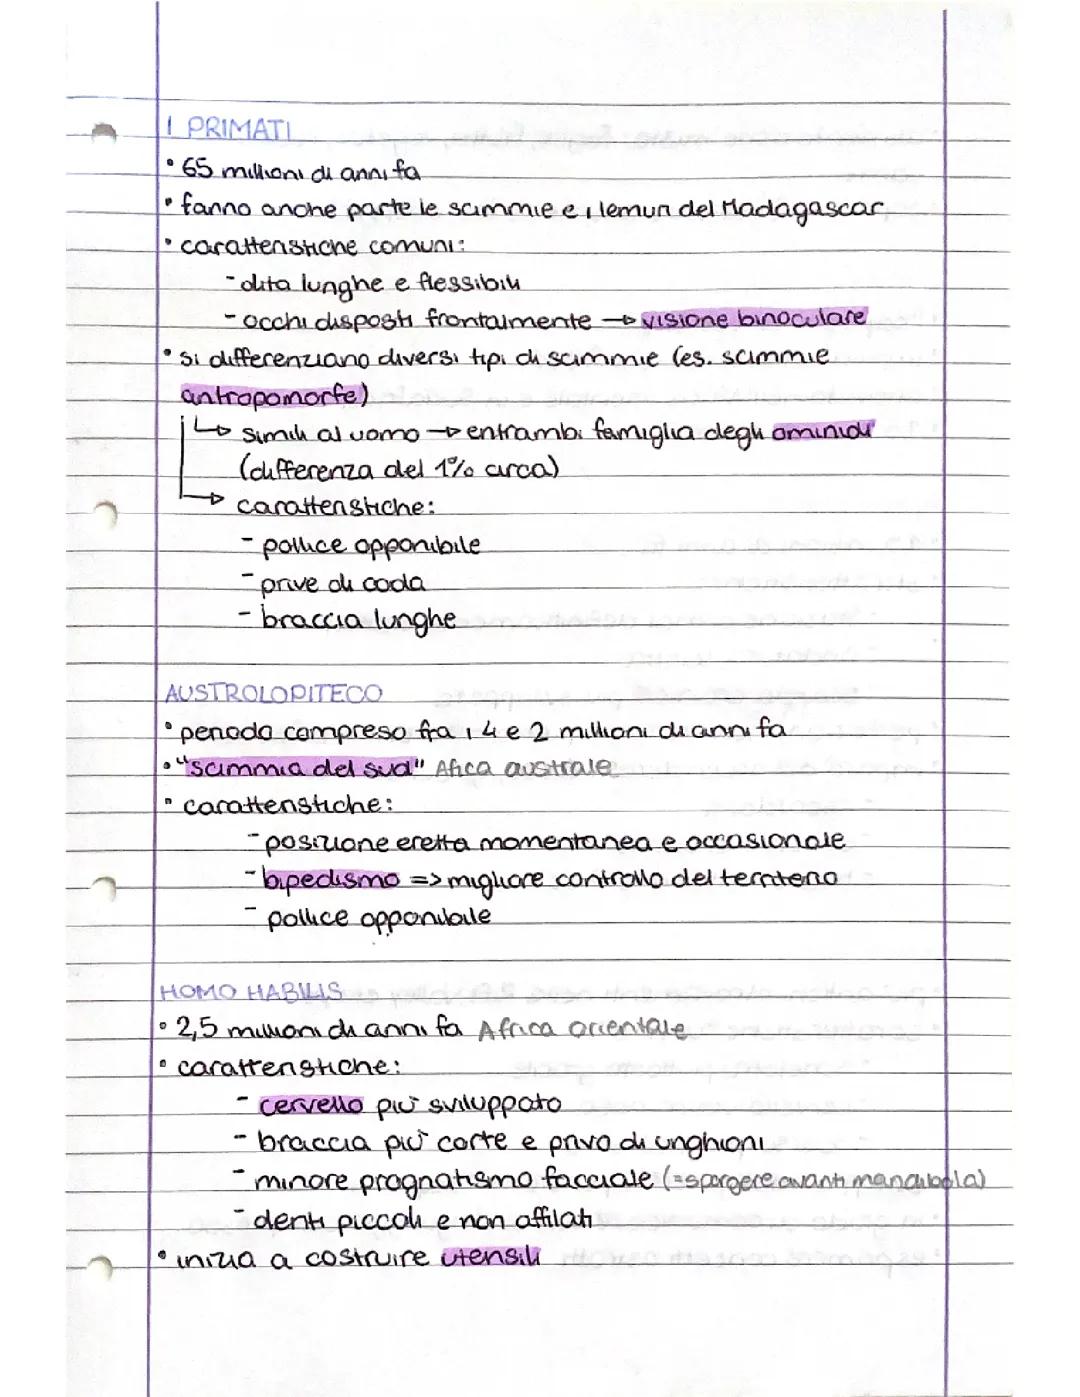 I PRIMATI
• 65 millioni di anni fa
• fanno anche parte le scimmie e i lemuri del Madagascar
• caratteristiche comuni:
- dita lunghe e flessibili
- occhi disposti frontalmente → visione binoculare
• si differenziano diversi tipi di scimmie (es. scimmie
antropomorfe)
→ simili al uomo → entrambi famiglia degli ominidi
(differenza del 1% circa)
→ caratteristiche:
- pollice opponibile
- prive di coda
- braccia lunghe
AUSTROLOPITECO
• periodo compreso fra i 4 e 2 millioni di anni fa
• "scimmia del sud" Afica australe
• caratteristiche:
- posizione eretta momentanea e occasionale
- bipedismo => migliore controllo del territerio
- pollice opponibile
HOMO HABILIS
• 2,5 millioni di anni fa Africa orientale
• caratteristiche:
- cervello più sviluppato
- braccia più corte e privo di unghioni
- minore prognatismo facciale (=sporgere avanti mandibola)
- denti piccoli e non affilati
• inizia a costruire utensili